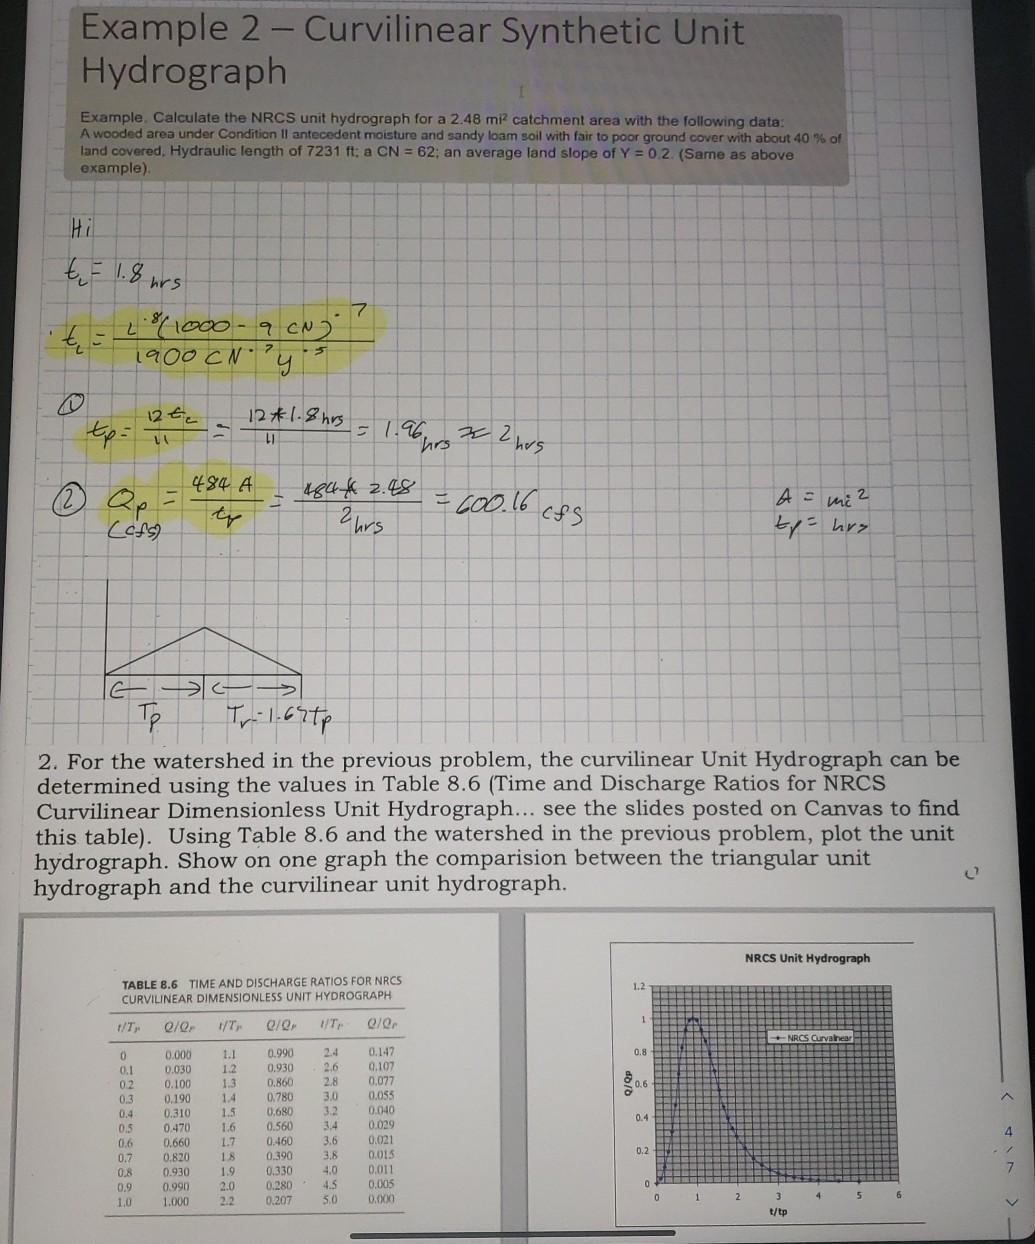 Example 2 – Curvilinear Synthetic Unit
Hydrograph
Example. Calculate the NRCS unit hydrograph for a 2.48 mi² catchment area with the following data:
A wooded area under Condition II antecedent moisture and sandy loam soil with fair to poor ground cover with about 40 % of
land covered, Hydraulic length of 7231 ft; a CN = 62; an average land slope of Y = 0.2. (Same as above
example).
Hi
t_L = 1.8 hrs
t_L = L^.8 (1000 - 9 CN)^.7 / 1900 CN^.7 y^.5
① t_p = 12 t_c / 11 = 12 * 1.8 hrs / 11 = 1.96 hrs ≈ 2 hrs
② Q_p (cfs) = 484 A / t_p = 484 * 2.48 / 2 hrs = 600.16 cfs
A = mi²
t_p = hrs
T_p T_r = 1.67 t_p
2. For the watershed in the previous problem, the curvilinear Unit Hydrograph can be
determined using the values in Table 8.6 (Time and Discharge Ratios for NRCS
Curvilinear Dimensionless Unit Hydrograph... see the slides posted on Canvas to find
this table). Using Table 8.6 and the watershed in the previous problem, plot the unit
hydrograph. Show on one graph the comparision between the triangular unit
hydrograph and the curvilinear unit hydrograph.
TABLE 8.6 TIME AND DISCHARGE RATIOS FOR NRCS
CURVILINEAR DIMENSIONLESS UNIT HYDROGRAPH
t/Tp Q/Qp t/Tp Q/Qp t/Tp Q/Qp
0 0.000 1.1 0.990 2.4 0.147
0.1 0.030 1.2 0.930 2.6 0.107
0.2 0.100 1.3 0.860 2.8 0.077
0.3 0.190 1.4 0.780 3.0 0.055
0.4 0.310 1.5 0.680 3.2 0.040
0.5 0.470 1.6 0.560 3.4 0.029
0.6 0.660 1.7 0.460 3.6 0.021
0.7 0.820 1.8 0.390 3.8 0.015
0.8 0.930 1.9 0.330 4.0 0.011
0.9 0.990 2.0 0.280 4.5 0.005
1.0 1.000 2.2 0.207 5.0 0.000
NRCS Unit Hydrograph
1.2
1
0.8
0.6
0.4
0.2
0
Q/Qp
NRCS Curvalinear
0 1 2 3 4 5 6
t/tp
4
/
7